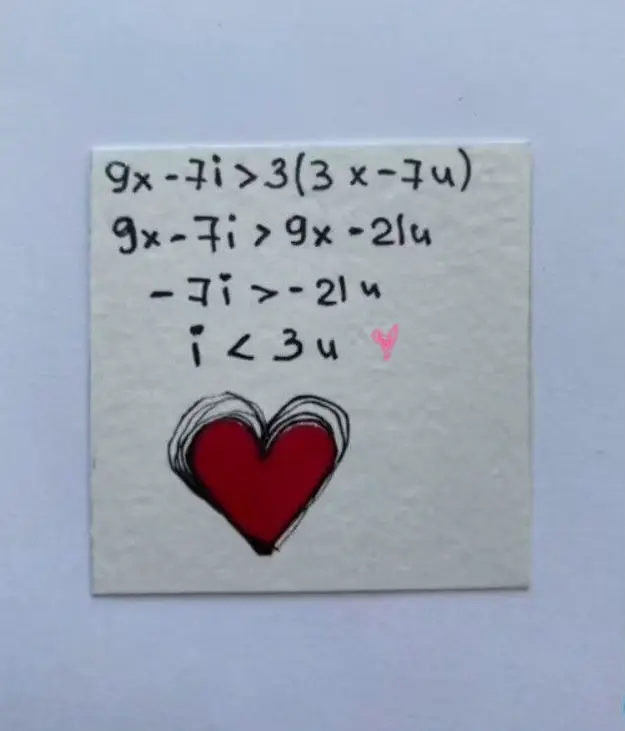 9x - 7i > 3(3x - 7u)
9x - 7i > 9x - 21u
- 7i > - 21u
i < 3u